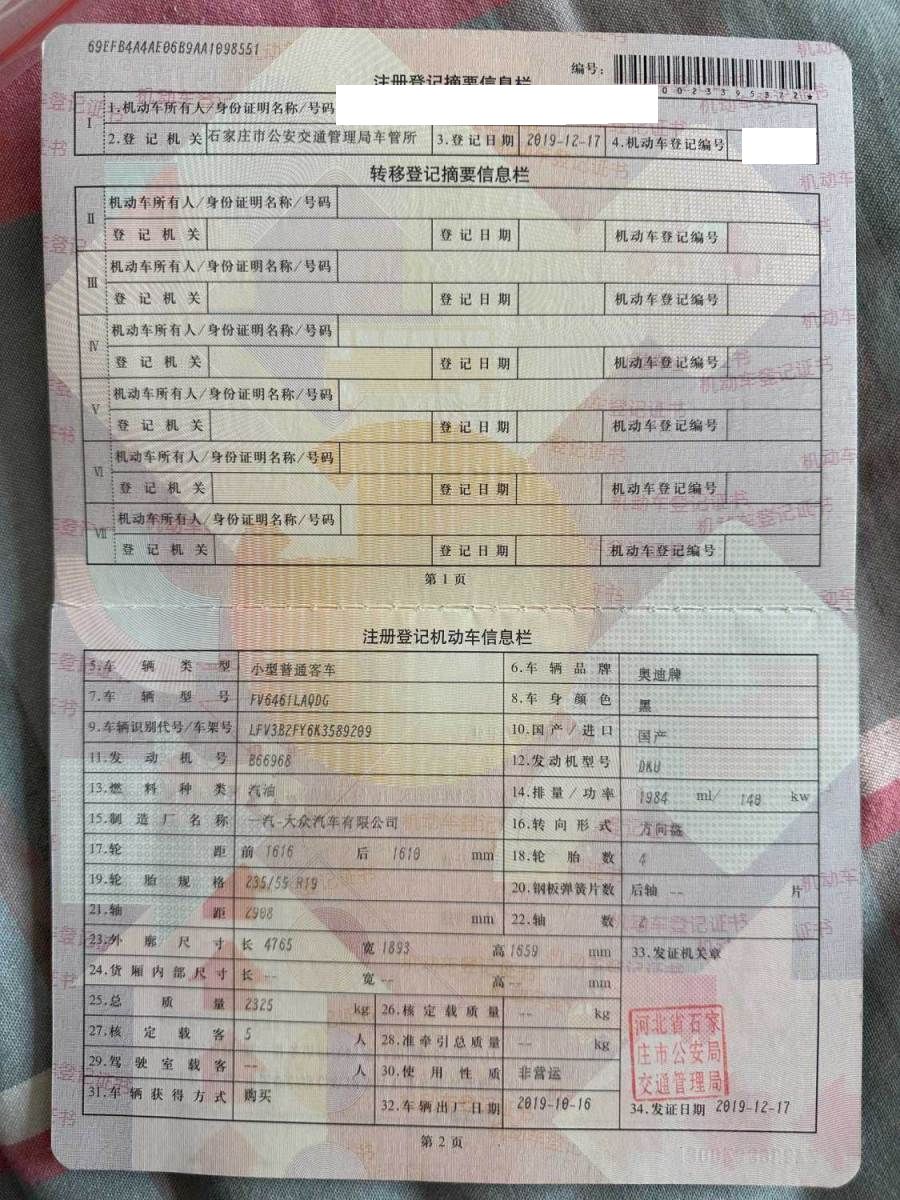 69EFB4A4AE06B9AA1098551
编号：
注册登记摘要信息栏
Ⅰ 1.机动车所有人/身份证明名称/号码
2.登记机关 石家庄市公安交通管理局车管所 3.登记日期 2019-12-17 4.机动车登记编号
转移登记摘要信息栏
Ⅱ 机动车所有人/身份证明名称/号码
登记机关 登记日期 机动车登记编号
Ⅲ 机动车所有人/身份证明名称/号码
登记机关 登记日期 机动车登记编号
Ⅳ 机动车所有人/身份证明名称/号码
登记机关 登记日期 机动车登记编号
Ⅴ 机动车所有人/身份证明名称/号码
登记机关 登记日期 机动车登记编号
Ⅵ 机动车所有人/身份证明名称/号码
登记机关 登记日期 机动车登记编号
Ⅶ 机动车所有人/身份证明名称/号码
登记机关 登记日期 机动车登记编号
第1页
注册登记机动车信息栏
5.车辆类型 小型普通客车 6.车辆品牌 奥迪牌
7.车辆型号 FV6461LAQDG 8.车身颜色 黑
9.车辆识别代号/车架号 LFV3B2FY6K3589209 10.国产/进口 国产
11.发动机号 B66968 12.发动机型号 DKU
13.燃料种类 汽油 14.排量/功率 1984 ml/ 140 kw
15.制造厂名称 一汽-大众汽车有限公司 16.转向形式 方向盘
17.轮距 前 1616 后 1610 mm 18.轮胎数 4
19.轮胎规格 235/55 R19 20.钢板弹簧片数 后轴 -- 片
21.轴距 2908 mm 22.轴数
23.外廓尺寸 长 4765 宽 1893 高 1659 mm 33.发证机关章
24.货厢内部尺寸 长 -- 宽 -- 高 -- mm
25.总质量 2325 kg 26.核定载质量 -- kg
27.核定载客 5 人 28.准牵引总质量 -- kg
河北省石家
庄市公安局
交通管理局
29.驾驶室载客 -- 人 30.使用性质 非营运
31.车辆获得方式 购买 32.车辆出厂日期 2019-10-16 34.发证日期 2019-12-17
第2页